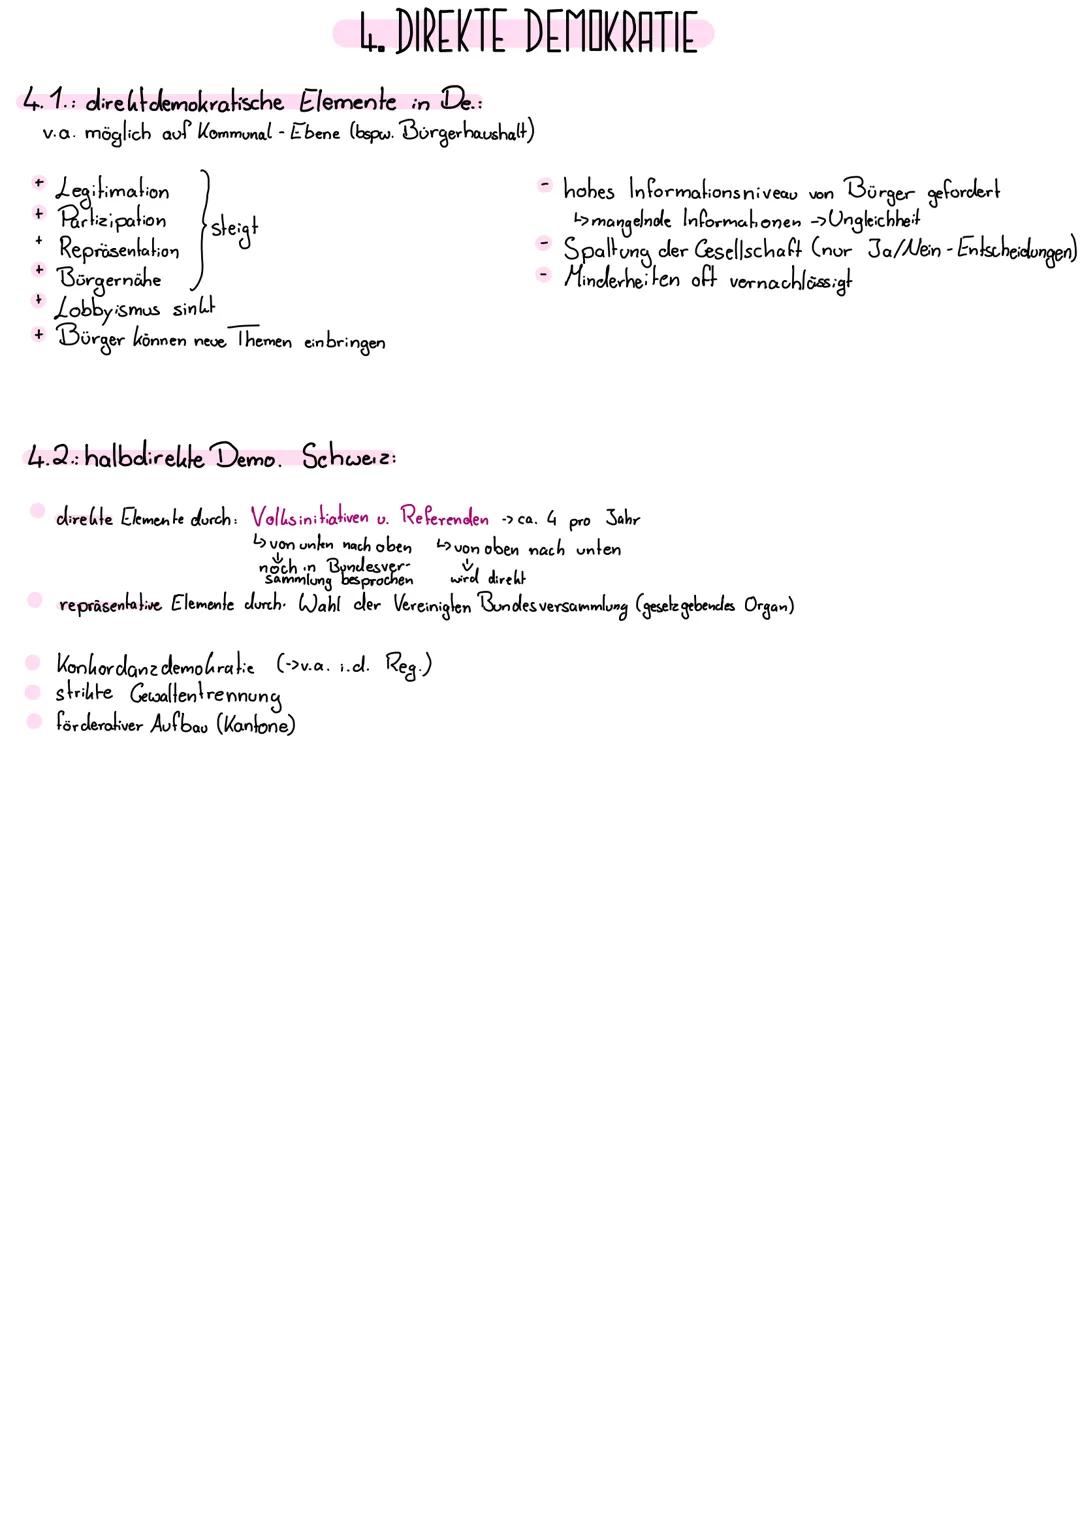 4. DIREKTE DEMOKRATIE
4.1.: direktdemokratische Elemente in De.:
v.a. möglich auf Kommunal-Ebene (bspw. Bürgerhaushalt)
+ Legitimation
+ Partizipation
+ Repräsentation
+ Bürgernähe
steigt
+ Lobbyismus sinkt
+ Bürger können neue Themen einbringen
- hohes Informationsniveau von Bürger gefordert
↳ mangelnde Informationen -> Ungleichheit
- Spaltung der Gesellschaft (nur Ja/Nein-Entscheidungen)
- Minderheiten oft vernachlässigt
4.2.: halbdirekte Demo. Schweiz:
direkte Elemente durch: Volksinitiativen u. Referenden -> ca. 4 pro Jahr
↳ von unten nach oben ↳ von oben nach unten
↓ ↓
noch in Bundesver-
sammlung besprochen wird direkt
repräsentative Elemente durch: Wahl der Vereinigten Bundesversammlung (gesetzgebendes Organ)
Konkordanzdemokratie (->v.a. i.d. Reg.)
strikte Gewaltentrennung
förderativer Aufbau (Kantone)